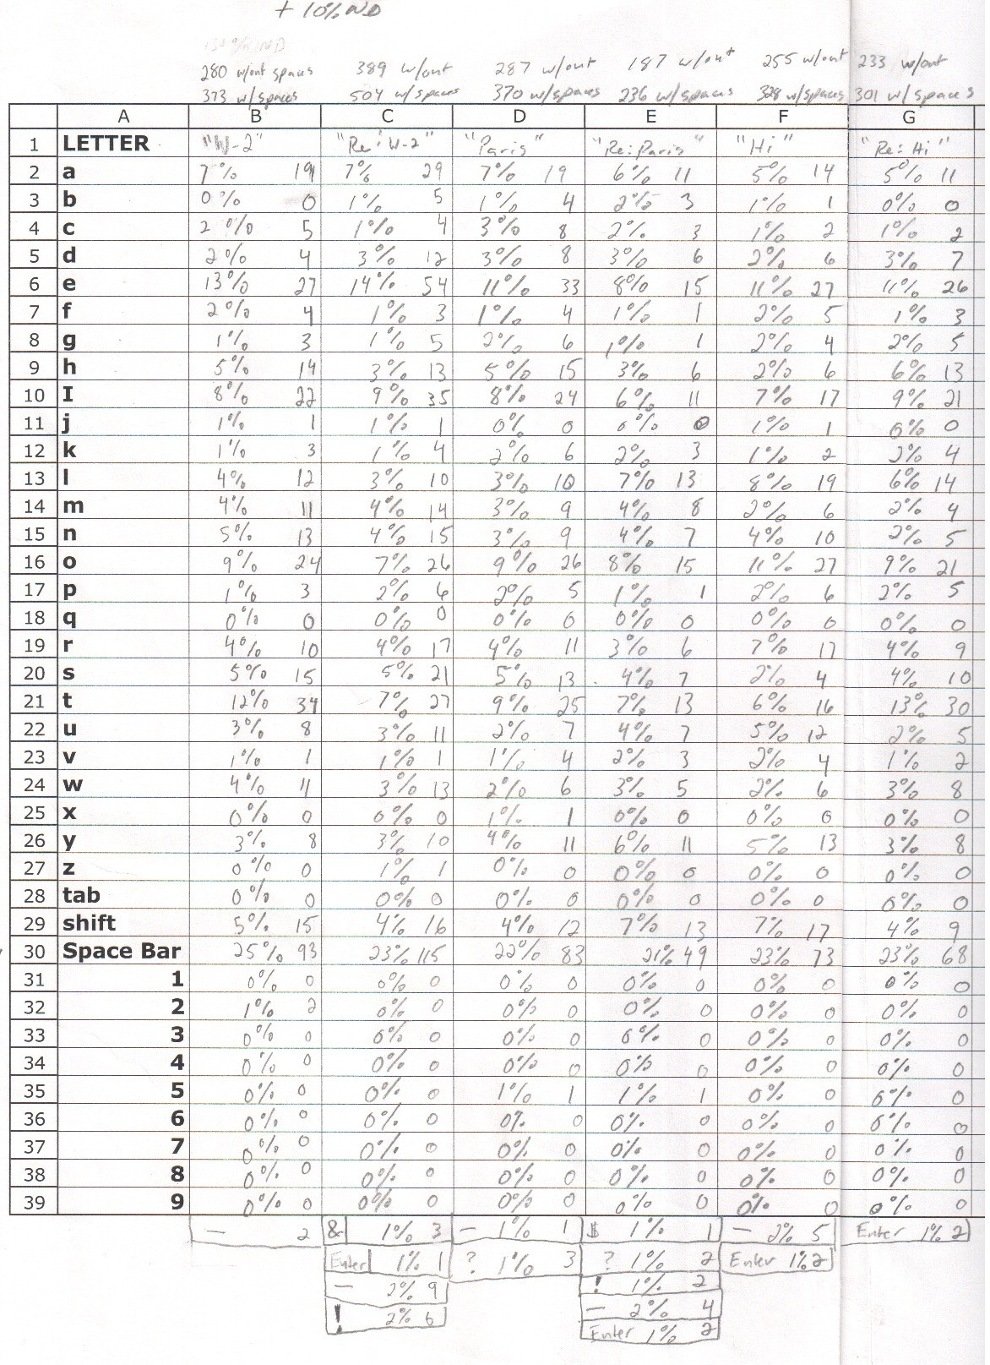 + 10% ND
280 w/out spaces 389 w/out 287 w/out 187 w/out 255 w/out 233 w/out
373 w/spaces 504 w/spaces 370 w/spaces 236 w/spaces 328 w/spaces 301 w/spaces
A B C D E F G
1 LETTER "W-2" "Re: W-2" "Paris" "Re: Paris" "Hi" "Re: Hi"
2 a 7% 19 7% 29 7% 19 6% 11 5% 14 5% 11
3 b 0% 0 1% 5 1% 4 2% 3 1% 1 0% 0
4 c 2% 5 1% 4 3% 8 2% 3 1% 2 1% 2
5 d 2% 4 3% 12 3% 8 3% 6 2% 6 3% 7
6 e 13% 27 14% 54 11% 33 8% 15 11% 27 11% 26
7 f 2% 4 1% 3 1% 4 1% 1 2% 5 1% 3
8 g 1% 3 1% 5 2% 6 1% 1 2% 4 2% 5
9 h 5% 14 3% 13 5% 15 3% 6 2% 6 6% 13
10 I 8% 22 9% 35 8% 24 6% 11 7% 17 9% 21
11 j 1% 1 1% 1 0% 0 0% 0 1% 1 0% 0
12 k 1% 3 1% 4 2% 6 2% 3 1% 2 2% 4
13 l 4% 12 3% 10 3% 10 7% 13 8% 19 6% 14
14 m 4% 11 4% 14 3% 9 4% 8 2% 6 2% 4
15 n 5% 13 4% 15 3% 9 4% 7 4% 10 2% 5
16 o 9% 24 7% 26 9% 26 8% 15 11% 27 9% 21
17 p 1% 3 2% 6 2% 5 1% 1 2% 6 2% 5
18 q 0% 0 0% 0 0% 0 0% 0 0% 0 0% 0
19 r 4% 10 4% 17 4% 11 3% 6 7% 17 4% 9
20 s 5% 15 5% 21 5% 13 4% 7 2% 4 4% 10
21 t 12% 34 7% 27 9% 25 7% 13 6% 16 13% 30
22 u 3% 8 3% 11 2% 7 4% 7 5% 12 2% 5
23 v 1% 1 1% 1 1% 4 2% 3 2% 4 1% 2
24 w 4% 11 3% 13 2% 6 3% 5 2% 6 3% 8
25 x 0% 0 0% 0 1% 1 0% 0 0% 0 0% 0
26 y 3% 8 3% 10 4% 11 6% 11 5% 13 3% 8
27 z 0% 0 1% 1 0% 0 0% 0 0% 0 0% 0
28 tab 0% 0 0% 0 0% 0 0% 0 0% 0 0% 0
29 shift 5% 15 4% 16 4% 12 7% 13 7% 17 4% 9
30 Space Bar 25% 93 23% 115 22% 83 21% 49 23% 73 23% 68
31 1 0% 0 0% 0 0% 0 0% 0 0% 0 0% 0
32 2 1% 2 0% 0 0% 0 0% 0 0% 0 0% 0
33 3 0% 0 0% 0 0% 0 0% 0 0% 0 0% 0
34 4 0% 0 0% 0 0% 0 0% 0 0% 0 0% 0
35 5 0% 0 0% 0 1% 1 1% 1 0% 0 0% 0
36 6 0% 0 0% 0 0% 0 0% 0 0% 0 0% 0
37 7 0% 0 0% 0 0% 0 0% 0 0% 0 0% 0
38 8 0% 0 0% 0 0% 0 0% 0 0% 0 0% 0
39 9 0% 0 0% 0 0% 0 0% 0 0% 0 0% 0
— 2 & 1% 3 — 1% 1 $ 1% 1 — 2% 5 Enter 1% 2
Enter 1% 1 ? 1% 3 ? 1% 2 Enter 1% 2
— 2% 9 ! 1% 2
! 2% 6 — 2% 4
Enter 1% 2